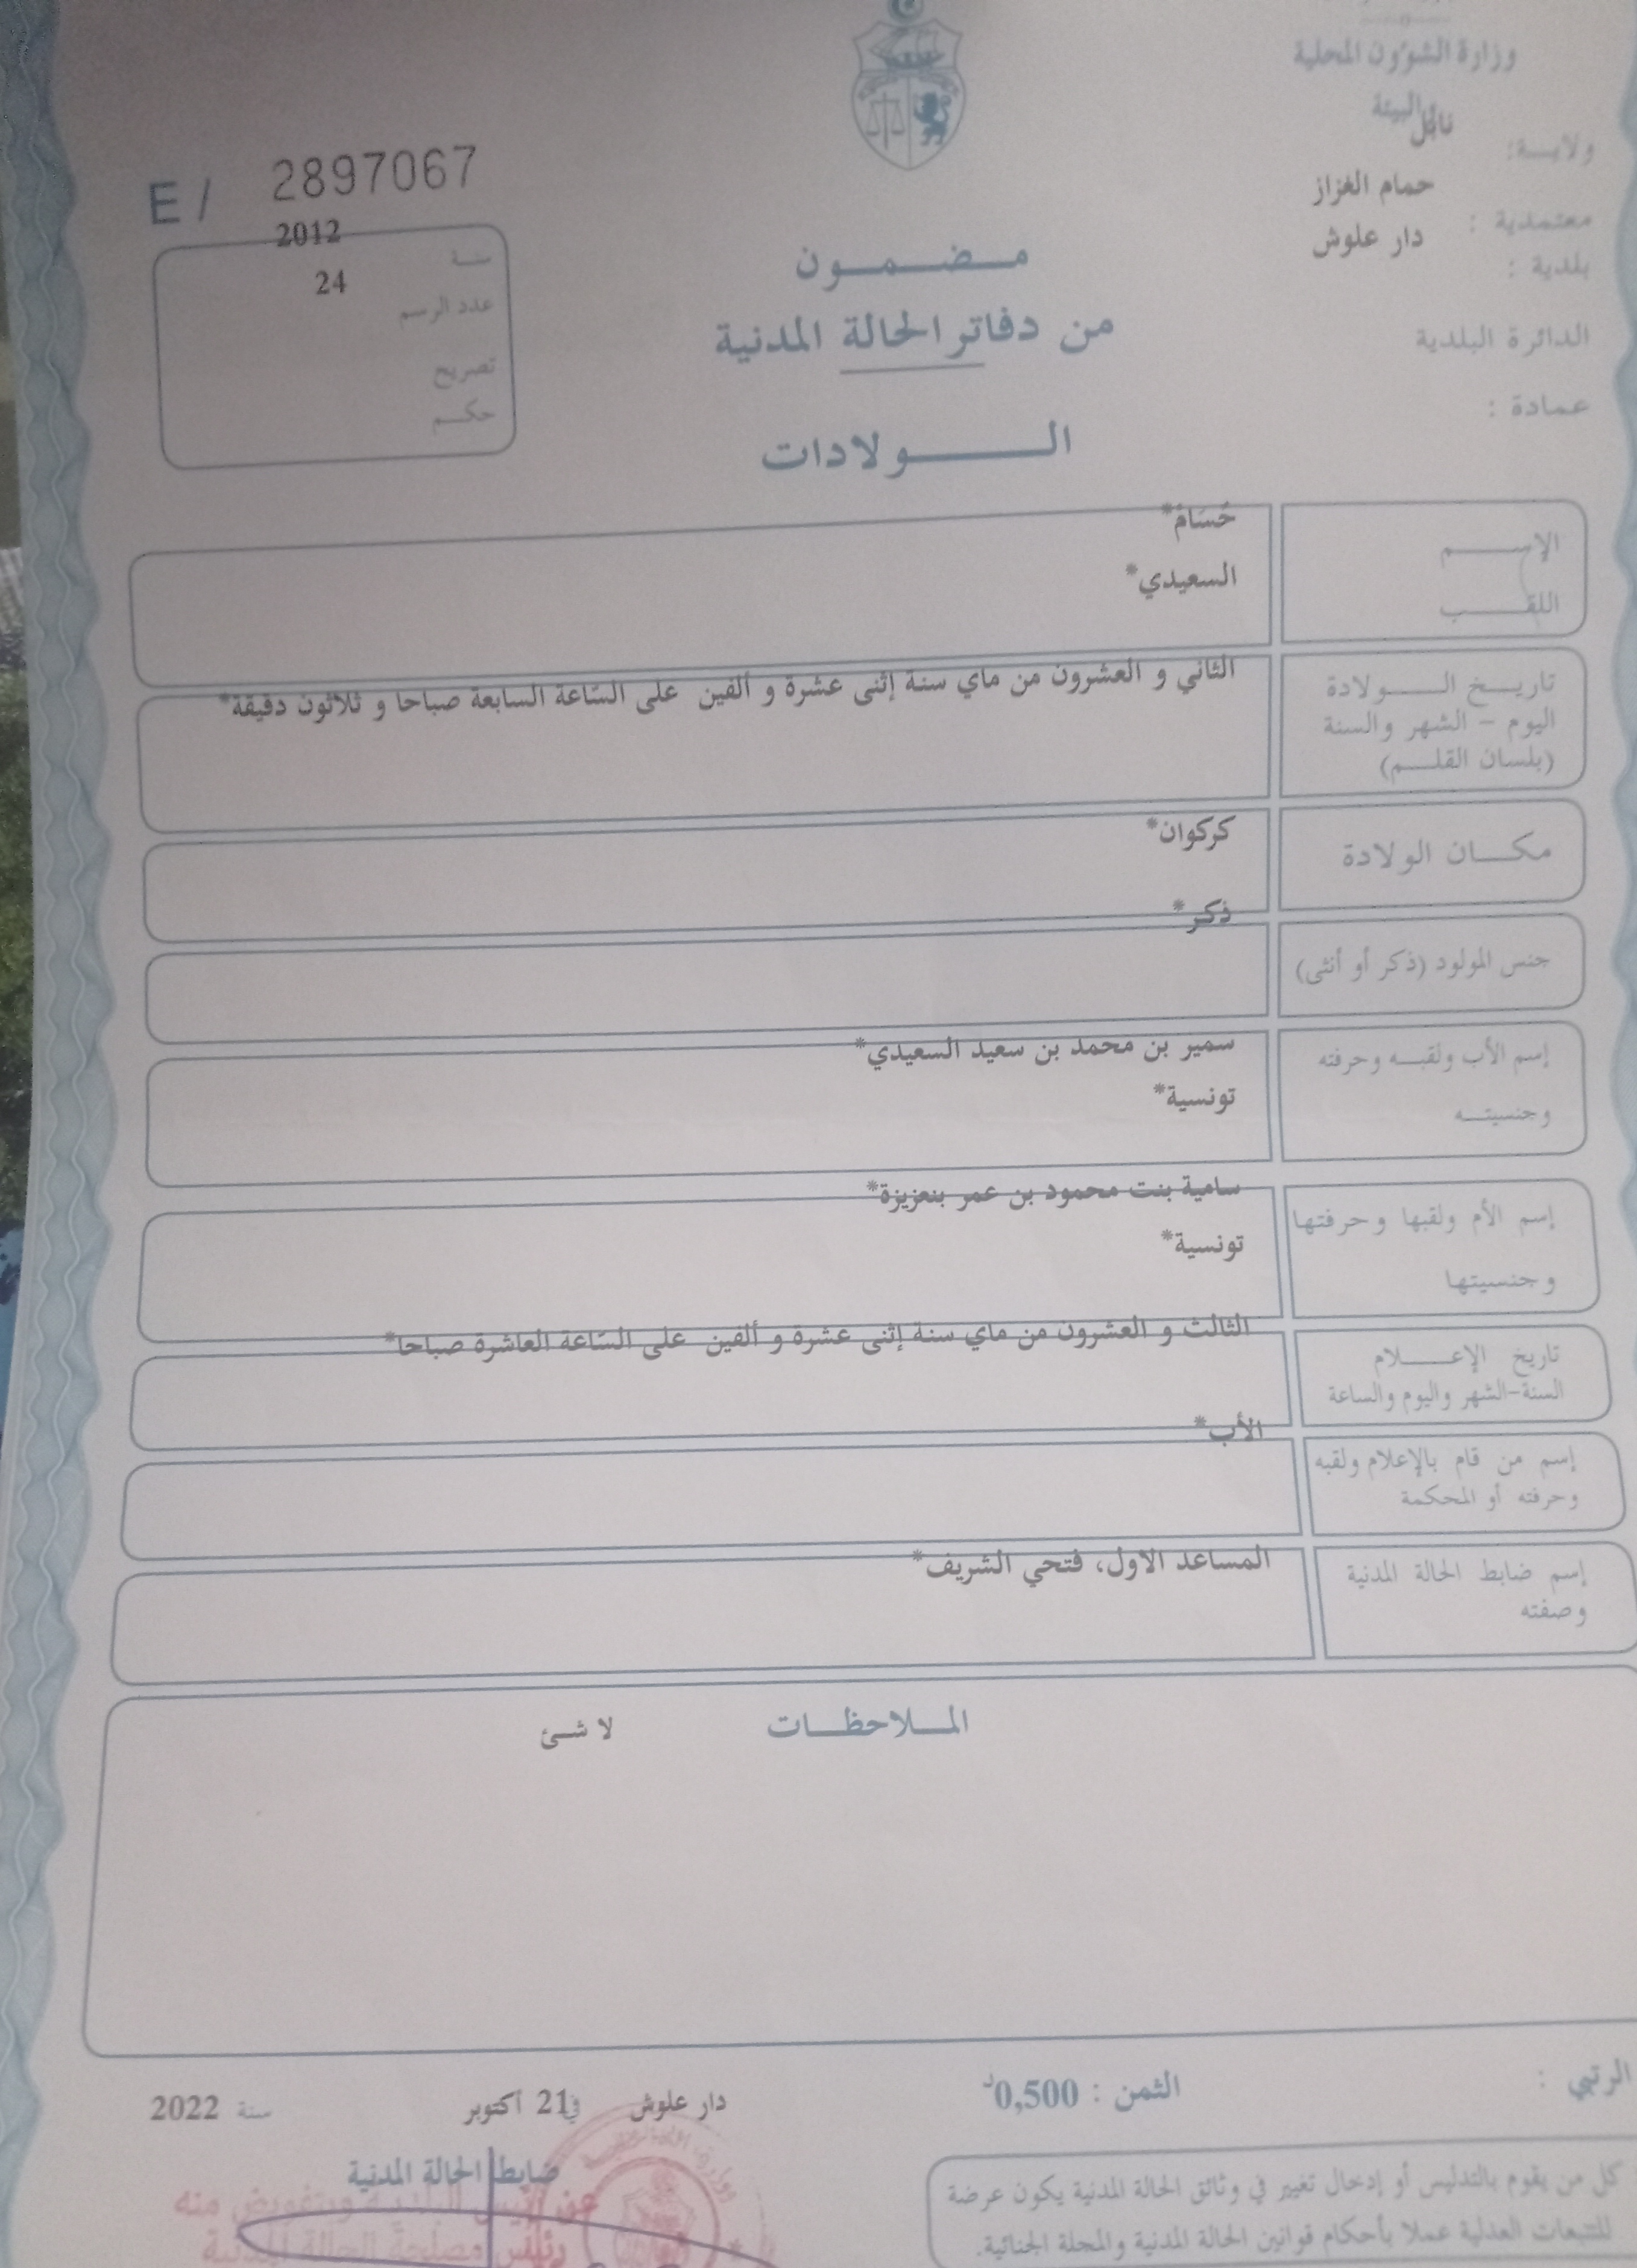 وزارة الشؤون المحلية
والبيئة
ولايـــة: نابل
معتمدية : حمام الغزاز
بلدية : دار علوش
الدائرة البلدية
عمادة :
E / 2897067
سنة 2012
عدد الرسم 24
تصريح
حكم
مضمون
من دفاتر الحالة المدنية
الولادات
الإسم حُسَامْ*
اللقب السعيدي*
تاريخ الولادة الثاني و العشرون من ماي سنة إثنى عشرة و ألفين على السّاعة السابعة صباحا و ثلاثون دقيقة*
اليوم - الشهر والسنة
(بلسان القلم)
مكان الولادة كركوان*
جنس المولود (ذكر أو أنثى) ذكر*
إسم الأب ولقبه وحرفته سمير بن محمد بن سعيد السعيدي*
وجنسيته تونسية*
إسم الأم ولقبها وحرفتها سامية بنت محمود بن عمر بنعزيزة*
وجنسيتها تونسية*
تاريخ الإعلام الثالث و العشرون من ماي سنة إثنى عشرة و ألفين على السّاعة العاشرة صباحا*
السنة-الشهر واليوم والساعة
إسم من قام بالإعلام ولقبه الأب*
وحرفته أو المحكمة
إسم ضابط الحالة المدنية المساعد الاول، فتحي الشريف*
وصفته
الملاحظات لا شئ
الرتبي :
الثمن : 0,500د
دار علوش في 21 أكتوبر سنة 2022
ضابط الحالة المدنية
عن الرئيس البلدية وبتفويض منه
رئيس مصلحة الحالة المدنية
كل من يقوم بالتدليس أو إدخال تغيير في وثائق الحالة المدنية يكون عرضة
للتتبعات العدلية عملا بأحكام قوانين الحالة المدنية والمجلة الجنائية.